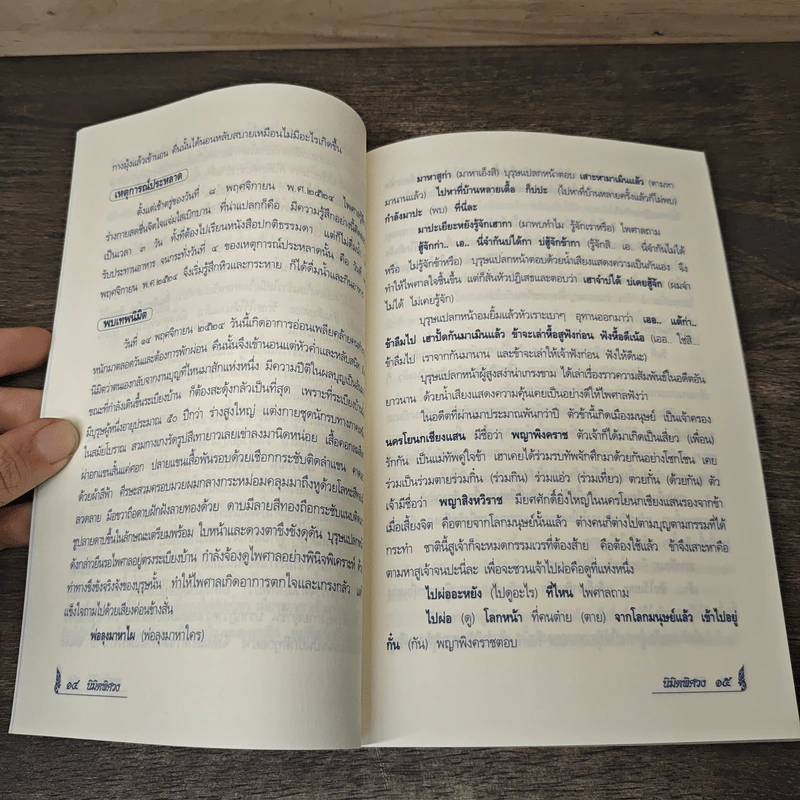 กางมุ้งแล้วเข้านอน คืนนั้นได้นอนหลับสบายเหมือนไม่มีอะไรเกิดขึ้น
เหตุการณ์ประหลาด
ตั้งแต่เช้าตรู่ของวันที่ ๘ พฤศจิกายน พ.ศ.๒๕๒๔ ไพศาลรู้สึก
ร่างกายสดชื่นจิตใจแจ่มใสเบิกบาน ที่น่าแปลกก็คือ มีความรู้สึกอย่างนี้ติดต่อ
เป็นเวลา ๓ วัน ทั้งที่ต้องไปเรียนหนังสือปกติธรรมดา แต่ก็ไม่
รับประทานอาหาร จนกระทั่งวันที่ ๔ ของเหตุการณ์ประหลาดนั้น คือ วันที่
พฤศจิกายน พ.ศ ๒๕๒๔ จึงเริ่มรู้สึกหิวและกระหาย ก็ได้ดื่มน้ำและกินอาหาร
พบเทพนิมิต
วันที่ ๑๔ พฤศจิกายน ๒๕๒๔ วันนี้เกิดอาการอ่อนเพลียคล้าย
หนักมาตลอดวันและต้องการพักผ่อน คืนนั้นจึงเข้านอนแต่หัวค่ำและหลับสนิท
นิมิตว่าตนเองกลับจากงานบุญที่ไหนมาสักแห่งหนึ่ง มีความปีติในผลบุญเป็น
ขณะที่กำลังเดินขึ้นระเบียงบ้าน ก็ต้องสะดุ้งกลัวเป็นที่สุด เพราะที่ระเบียงบ้าน
มีบุรุษผู้หนึ่งอายุประมาณ ๕๐ ปีกว่า ร่างสูงใหญ่ แต่งกายชุดนักรบทางภาค
ในสมัยโบราณ สวมกางเกงวัดรูปสีเทายาวเลยเข่าลงมานิดหน่อย เสื้อคอกลม
ผ่าอกแขนสั้นแค่ศอก ปลายแขนเสื้อพันรอบด้วยเชือกกระชับติดลำแขน คาด
ด้วยผ้าสีฟ้า ศีรษะสวมครอบมวยผมกลางกระหม่อมคลุมมาถึงหูด้วยโลหะสี
ลวดลาย มือขวาถือดาบฝักฝังลายทองด้วย ดาบมีลายสีทองถือกระชับแนบ
ชูปลายดาบขึ้นในลักษณะเตรียมพร้อม ใบหน้าและดวงตาขึงขังดุดัน บุรุษแปลก
ดังกล่าวยืนรอไพศาลอยู่ตรงระเบียงบ้าน กำลังจ้องดูไพศาลอย่างพินิจพิเคราะห์
ท่าทางขึงขังจริงจังของบุรุษนั้น ทำให้ไพศาลเกิดอาการตกใจและเกรงกลัว แต่
แข็งใจถามไปด้วยเสียงค่อนข้างสั่น
พ่อลุงมาหาไผ (พ่อลุงมาหาใคร)
๑๔ นิมิตพิศวง
มาหาสูก่า (มาหาเอ็งสิ) บุรุษแปลกหน้าตอบ เสาะหามาเมินแล้ว (ตามหา
มานานแล้ว) ไปหาที่บ้านหลายเตื้อ ก็บ่ปะ (ไปหาที่บ้านหลายครั้งแล้วก็ไม่พบ)
กำลังมาปะ (พบ) ที่นี่ละ
มาปะเยียะหยังรู้จักเฮากา (มาพบทำไม รู้จักเราหรือ) ไพศาลถาม
ฮู้จักก่า.. เอ.. นี่จำกันบ่ได้กา บ่ฮู้จักข้ากา (รู้จักสิ.. เอ.. นี่จำกันไม่ได้
หรือ ไม่รู้จักข้าหรือ) บุรุษแปลกหน้าตอบด้วยน้ำเสียงแสดงความเป็นกันเอง จึง
ทำให้ไพศาลใจชื้นขึ้น แต่ก็สั่นหัวปฏิเสธและตอบว่า เฮาจำบ่ได้ บ่เคยฮู้จัก (ผมจำ
ไม่ได้ ไม่เคยรู้จัก)
บุรุษแปลกหน้าอมยิ้มแล้วหัวเราะเบาๆ อุทานออกมาว่า เออ.. แต้ก่า..
ข้าลืมไป เฮาปั้ดกันมาเมินแล้ว ข้าจะเล่าหื้อสูฟังก่อน ฟังหื้อดีเน้อ (เออ.. ใช่สิ..
ข้าลืมไป เราจากกันมานาน และข้าจะเล่าให้เจ้าฟังก่อน ฟังให้ดีนะ)
บุรุษแปลกหน้าผู้สูงสง่าน่าเกรงขาม ได้เล่าเรื่องราวความสัมพันธ์ในอดีตอัน
ยาวนาน ด้วยน้ำเสียงแสดงความคุ้นเคยเป็นอย่างดีให้ไพศาลฟังว่า
ในอดีตที่ผ่านมาประมาณพันกว่าปี ตัวข้านี้เกิดเมืองมนุษย์ เป็นเจ้าครอง
นครโยนกเชียงแสน มีชื่อว่า พญาพิงคราช ตัวเจ้าก็ได้มาเกิดเป็นเสี่ยว (เพื่อน)
รักกัน เป็นแม่ทัพคู่ใจข้า เฮาเคยได้ร่วมรบทัพจักศึกมาด้วยกันอย่างโชกโชน เคย
ร่วมเป็นร่วมตายร่วมกิ๋น (ร่วมกิน) ร่วมแอ่ว (ร่วมเที่ยว) ตวยกั๋น (ด้วยกัน) ตัว
เจ้ามีชื่อว่า พญาสิงหวิราช มียศศักดิ์ยิ่งใหญ่ในนครโยนกเชียงแสนรองจากข้า
เมื่อเสี้ยงจิต คือตายจากโลกมนุษย์นั้นแล้ว ต่างคนก็ต่างไปตามบุญตามกรรมที่ได้
กระทำ ชาตินี้สูเจ้าก็จะหมดกรรมเวรที่ต้องส้าย คือต้องใช้แล้ว ข้าจึงเสาะหาคือ
ตามหาสูเจ้าจนปะนี่ละ เพื่อจะชวนเจ้าไปผ่อคือดูที่แห่งหนึ่ง
ไปผ่ออะหยัง (ไปดูอะไร) ที่ไหน ไพศาลถาม
ไปผ่อ (ดู) โลกหน้า ที่คนต๋าย (ตาย) จากโลกมนุษย์แล้ว เข้าไปอยู่
กั๋น (กัน) พญาพิงคราชตอบ
นิมิตพิศวง ๑๕